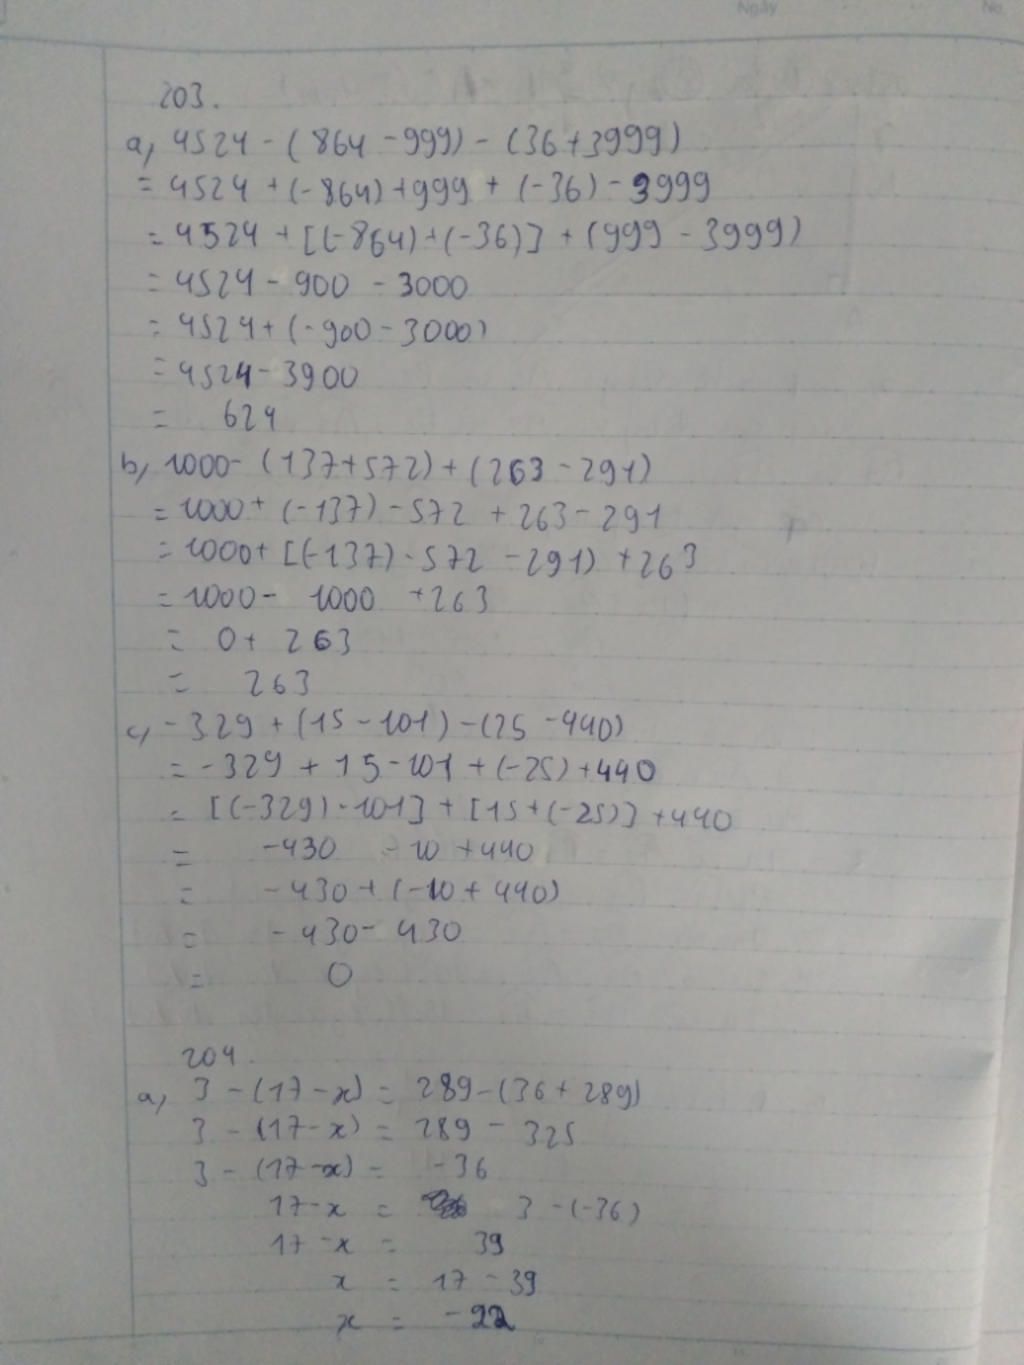 Ngày
No.
203.
a, 4524 - (864 - 999) - (36 + 3999)
= 4524 + (-864) + 999 + (-36) - 3999
= 4524 + [(-864) + (-36)] + (999 - 3999)
= 4524 - 900 - 3000
= 4524 + (-900 - 3000)
= 4524 - 3900
= 624
b, 1000 - (137 + 572) + (263 - 291)
= 1000 + (-137) - 572 + 263 - 291
= 1000 + [(-137) - 572 - 291) + 263
= 1000 - 1000 + 263
= 0 + 263
= 263
c, -329 + (15 - 101) - (25 - 440)
= -329 + 15 - 101 + (-25) + 440
= [(-329) - 101] + [15 + (-25)] + 440
= -430 - 10 + 440
= -430 + (-10 + 440)
= -430 - 430
= 0
204.
a, 3 - (17 - x) = 289 - (36 + 289)
3 - (17 - x) = 289 - 325
3 - (17 - x) = -36
17 - x = 3 - (-36)
17 - x = 39
x = 17 - 39
x = -22